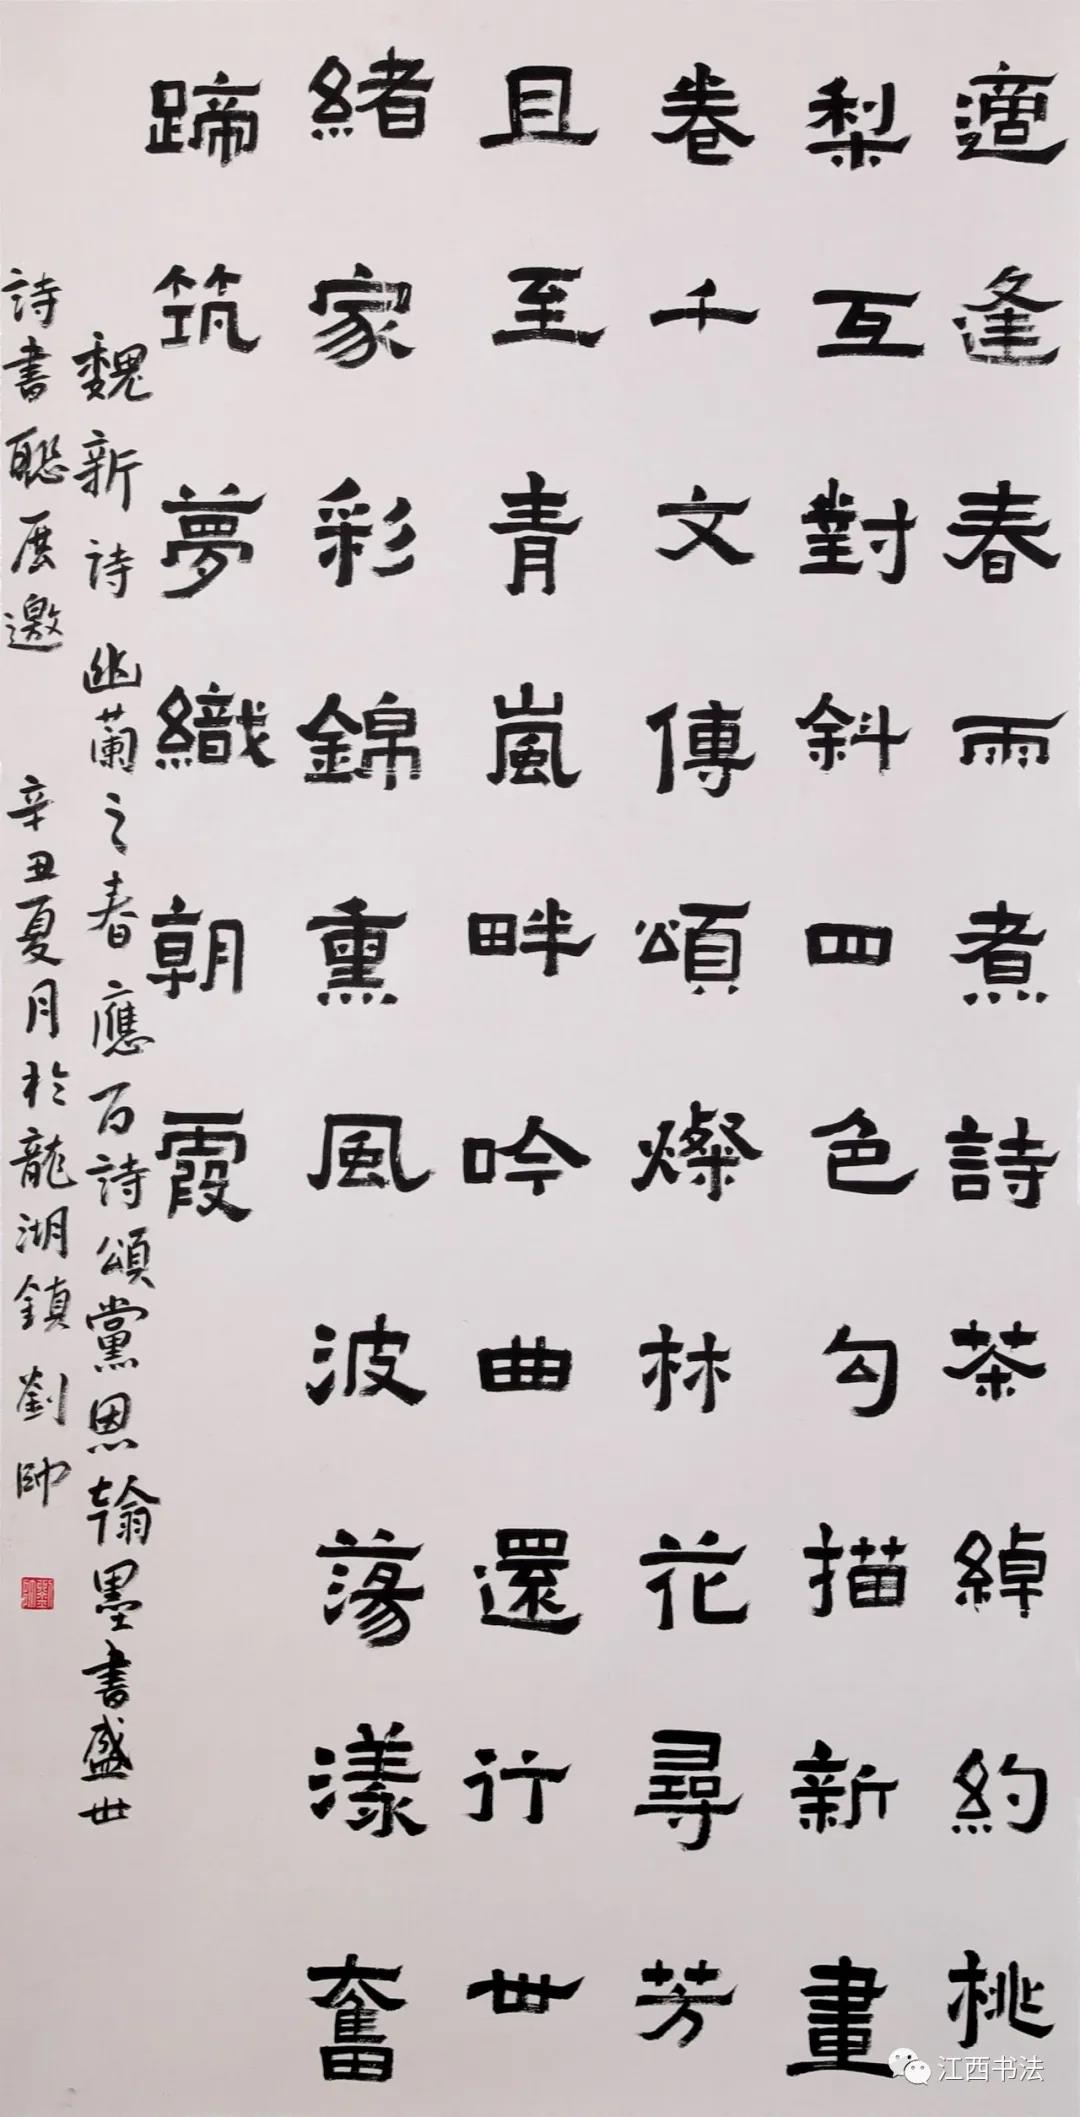 適逢春雨煮詩茶綽約桃
梨互對斜四色勾描新畫
卷千文傳頌燦林花尋芳
且至青嵐畔吟曲還行世
緒家彩錦熏風波蕩漾奮
蹄筑夢織朝霞
魏新詩幽蘭之春應百詩頌黨恩翰墨書盛世
詩書聯展邀 辛丑夏月於龍湖鎮劉帥
江西书法